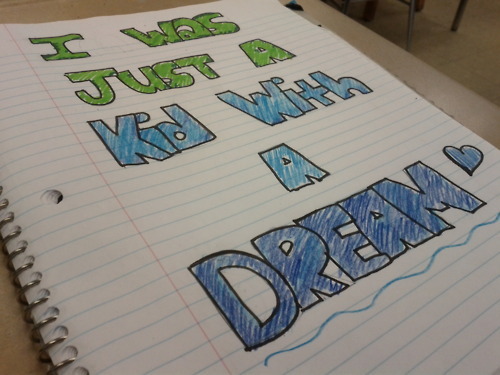 I WAS
JUST A
Kid With
A
DREAM